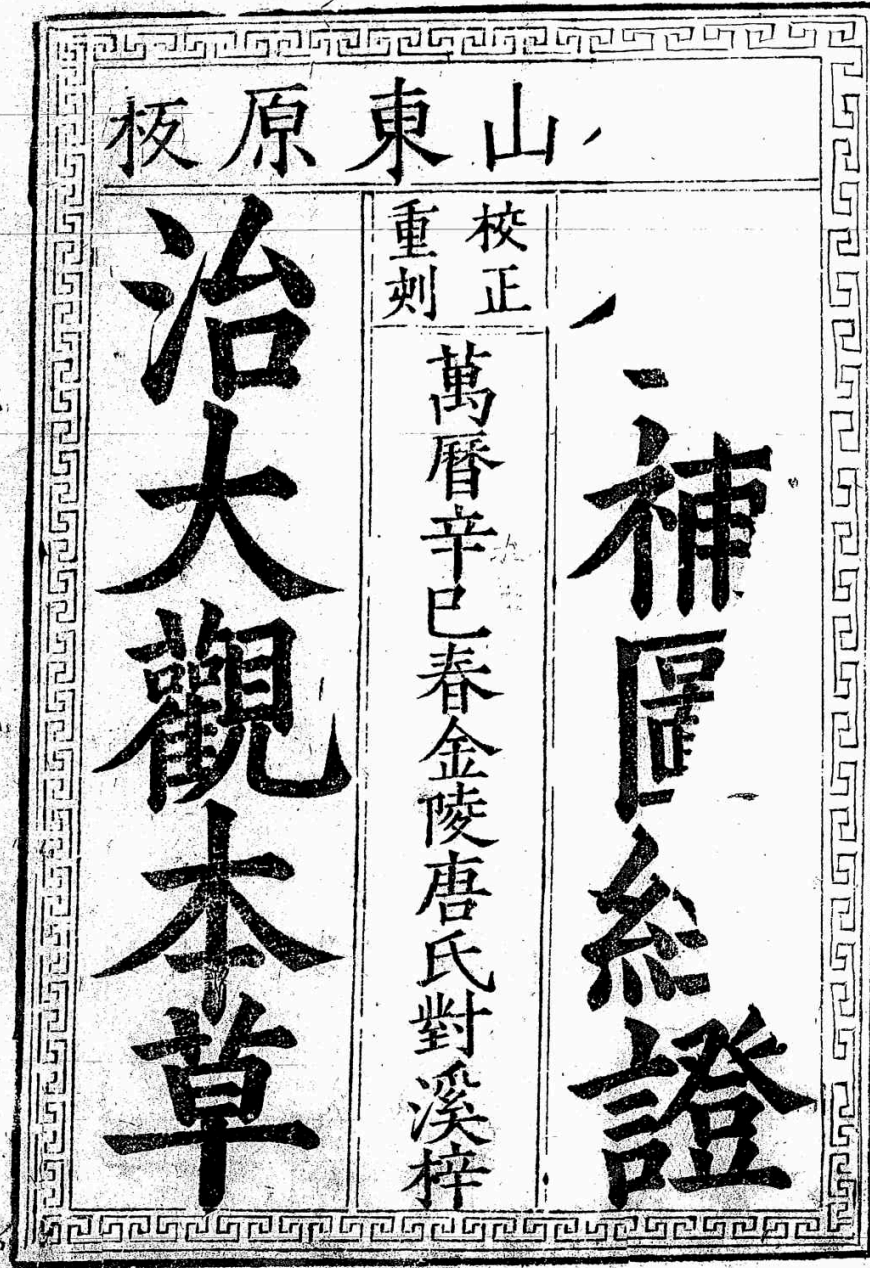 山東原板
補圖證
校正
重刻
萬曆辛巳春金陵唐氏對溪梓
治大觀本草